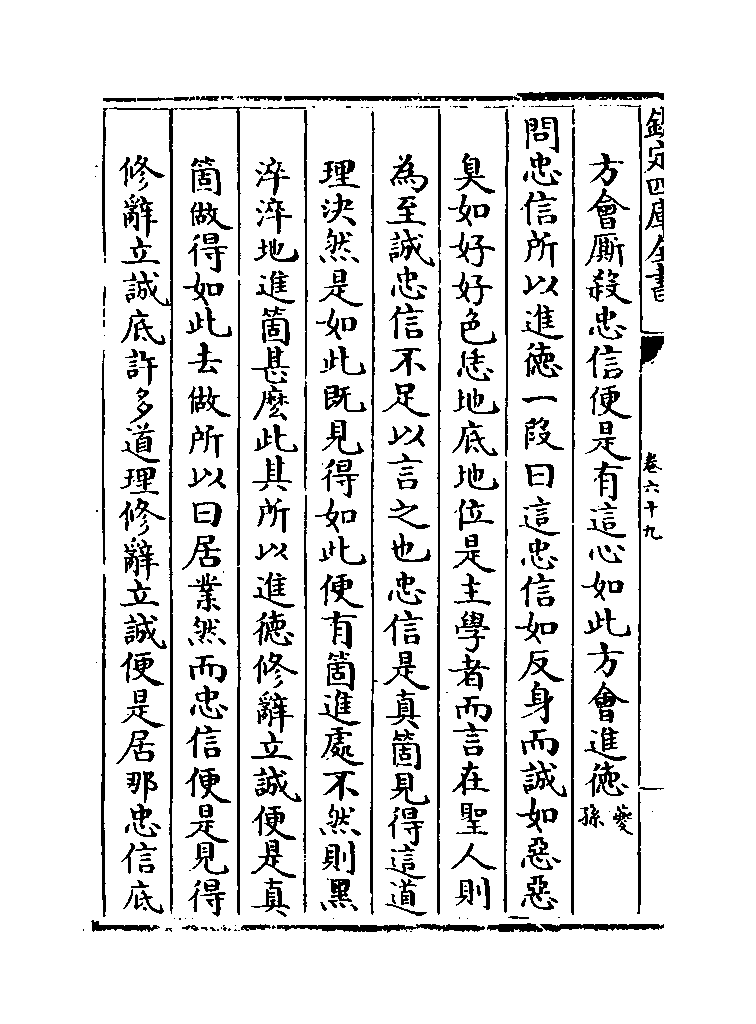 欽定四庫全書
卷六十九
方會厮殺忠信便是有這心如此方會進徳夔孫
問忠信所以進徳一段曰這忠信如反身而誠如惡惡
臭如好好色恁地底地位是主學者而言在聖人則
為至誠忠信不足以言之也忠信是真箇見得這道
理決然是如此既見得如此便有箇進處不然則黑
淬淬地進箇甚麽此其所以進徳修辭立誠便是真
箇做得如此去做所以曰居業然而忠信便是見得
修辭立誠底許多道理修辭立誠便是居那忠信底